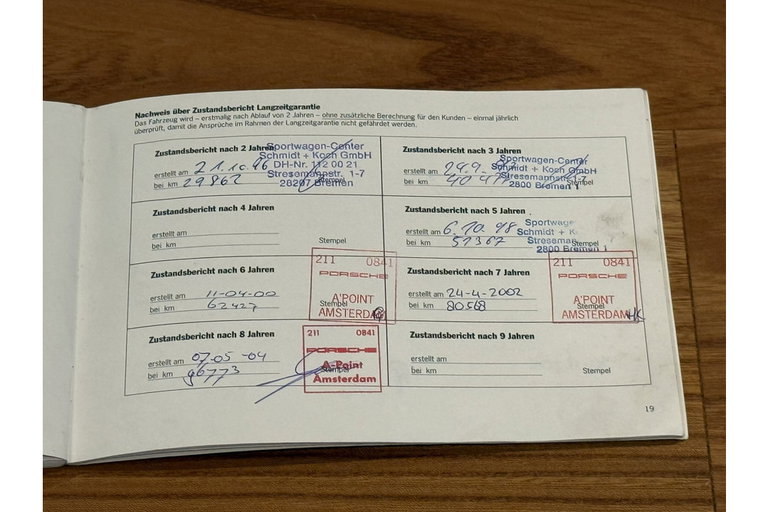 Nachweis über Zustandsbericht Langzeitgarantie
Das Fahrzeug wird – erstmalig nach Ablauf von 2 Jahren – ohne zusätzliche Berechnung für den Kunden – einmal jährlich
überprüft, damit die Ansprüche im Rahmen der Langzeitgarantie nicht gefährdet werden.
Zustandsbericht nach 2 Jahren
erstellt am 21.10.96
bei km 29862
Stempel
Sportwagen-Center
Schmidt + Koch GmbH
DH-Nr. 112 00 21
Stresemannstr. 1-7
28207 Bremen
Zustandsbericht nach 3 Jahren
erstellt am
bei km
Stempel
Sportwagen-Center
Schmidt + Koch GmbH
Stresemannstr. 1-7
2800 Bremen 1
Zustandsbericht nach 4 Jahren
erstellt am
bei km
Stempel
Zustandsbericht nach 5 Jahren
erstellt am 6.10.98
bei km 51367
Stempel
Sportwage
Schmidt + K
Stresema
2800 Bremen 1
Zustandsbericht nach 6 Jahren
erstellt am 11-04-00
bei km 62427
Stempel
211 0841
PORSCHE
A'POINT
AMSTERDAM
Zustandsbericht nach 7 Jahren
erstellt am 24-4-2002
bei km 80568
Stempel
211 0841
PORSCHE
A'POINT
AMSTERDAM
Zustandsbericht nach 8 Jahren
erstellt am 07-05-04
bei km 96773
Stempel
211 0841
PORSCHE
A-Point
Amsterdam
Zustandsbericht nach 9 Jahren
erstellt am
bei km
Stempel
19